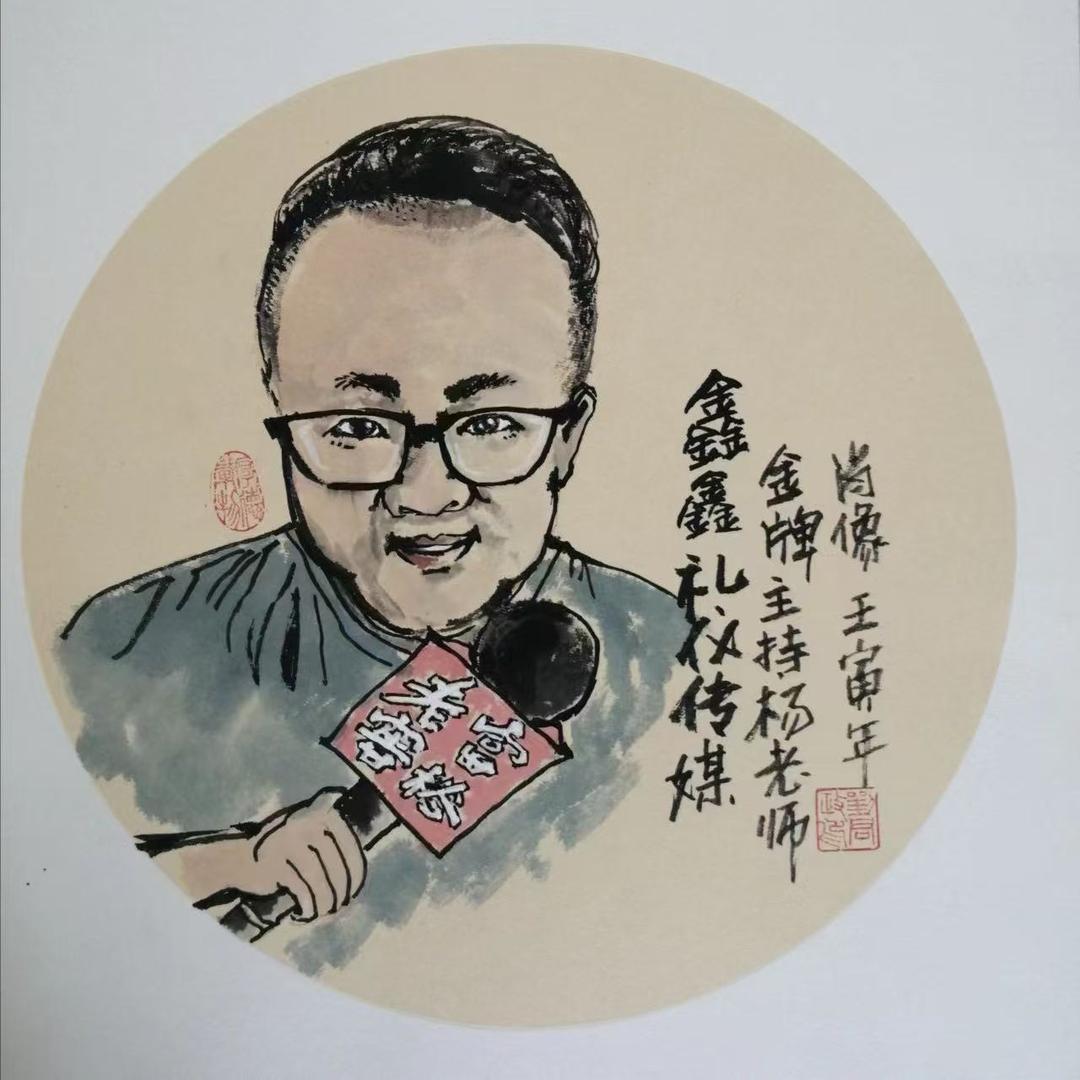 鑫鑫礼仪传媒
金牌主持杨老师
肖像 壬寅年
厚德載物